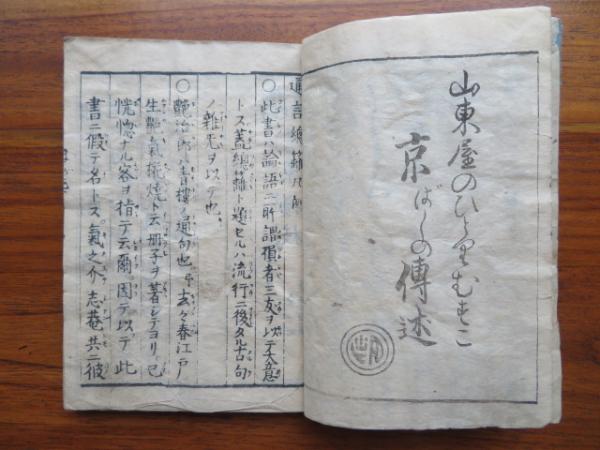 山東屋のひとりむすこ
京ばしの傳述
通言總籬凡例
○此書ハ論語ニ所謂損者三友ヲ以テ大意
トス蓋總籬ト題セルハ流行ニ後タル古句
ノ雜 ヲ以テ也
○艶治郎ハ青樓ノ通句也予去々春江戸
生艶氣樺焼ト云冊子ヲ著シテヨリ已
恍惚ナル客ヲ指テ云爾因テ以テ此
書ニ假テ名トス氣之介志菴共ニ彼